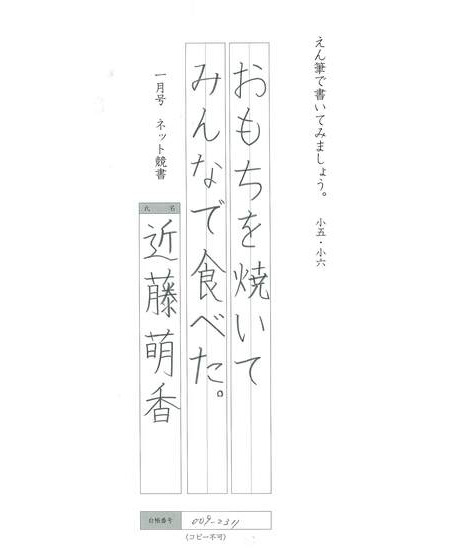 えん筆で書いてみましょう。 小五・小六
おもちを焼いて
みんなで食べた。
一月号 ネット競書
氏名
近藤萌香
台帳番号 009-2311
(コピー不可)